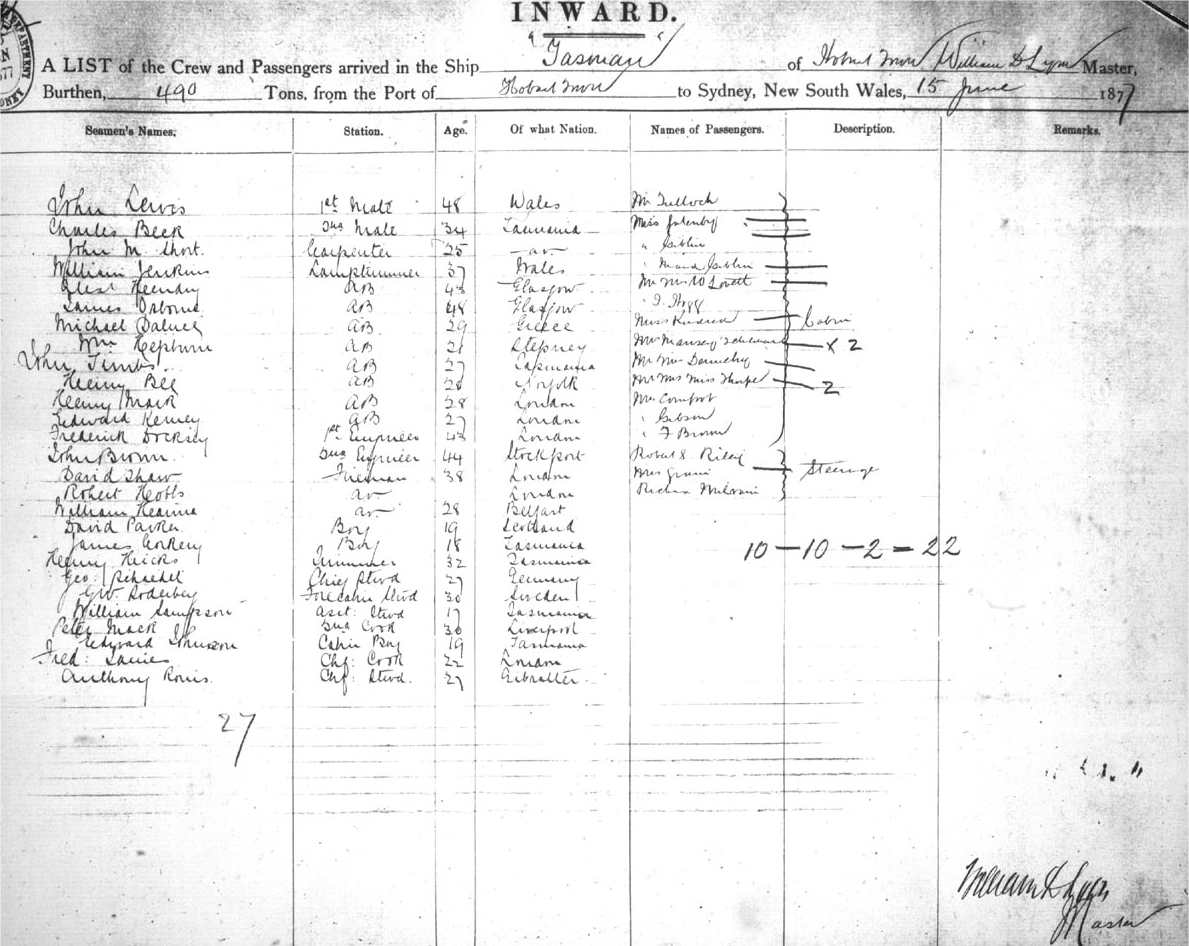 INWARD.
A LIST of the Crew and Passengers arrived in the Ship "Tasman" of Hobart Town William D Lyon Master,
Burthen, 490 Tons, from the Port of Hobart Town to Sydney, New South Wales, 15 June 1877
Seamen's Names. Station. Age. Of what Nation. Names of Passengers. Description. Remarks.
John Lewis 1st Mate 48 Wales Mr Tulloch
Charles Beer 2nd Mate 34 Tasmania Miss
John M. Short. Carpenter 25 do " Giblin
William Jenkins Lamptrimmer 37 Wales " Maud Giblin
AB 43 Glasgow Mr Mrs Lovett
James Osborne AB 48 Glasgow
Michael AB 29 Greece Miss Cabin
Wm Hepburn AB 21 Stepney Mr x 2
John Timbs AB 27 Tasmania Mr Mrs
Henry Bee AB 28 Norfolk Mr Mrs Miss Thorpe 2
Henry Mack AB 28 London Mr Comfort
Edward Kenney AB 27 London " Gibson
Frederick Docksey 1st Engineer 43 London " F Brown
John Brown 2nd Engineer 44 Stockport Robert S. Riley
David Shaw Fireman 38 London Mrs Steerage
Robert Hobbs do London Richd
William do 28 Belfast
David Parker Boy 19 Scotland
James Boy 18 Tasmania 10 - 10 - 2 = 22
Henry Hicks 32 Tasmania
Geo: Chief Stwd 27 Germany
GW. Soderberg Forecabin Stwd 30 Sweden
William Sampson Asst: Stwd 17 Tasmania
Peter Mack 2nd Cook 30 Liverpool
Edward Johnson Cabin Boy 19 Tasmania
Fred: Chf: Cook 22 London
Anthony Chf: Stwd. 27 Gibralter
27
William D Lyon
Master